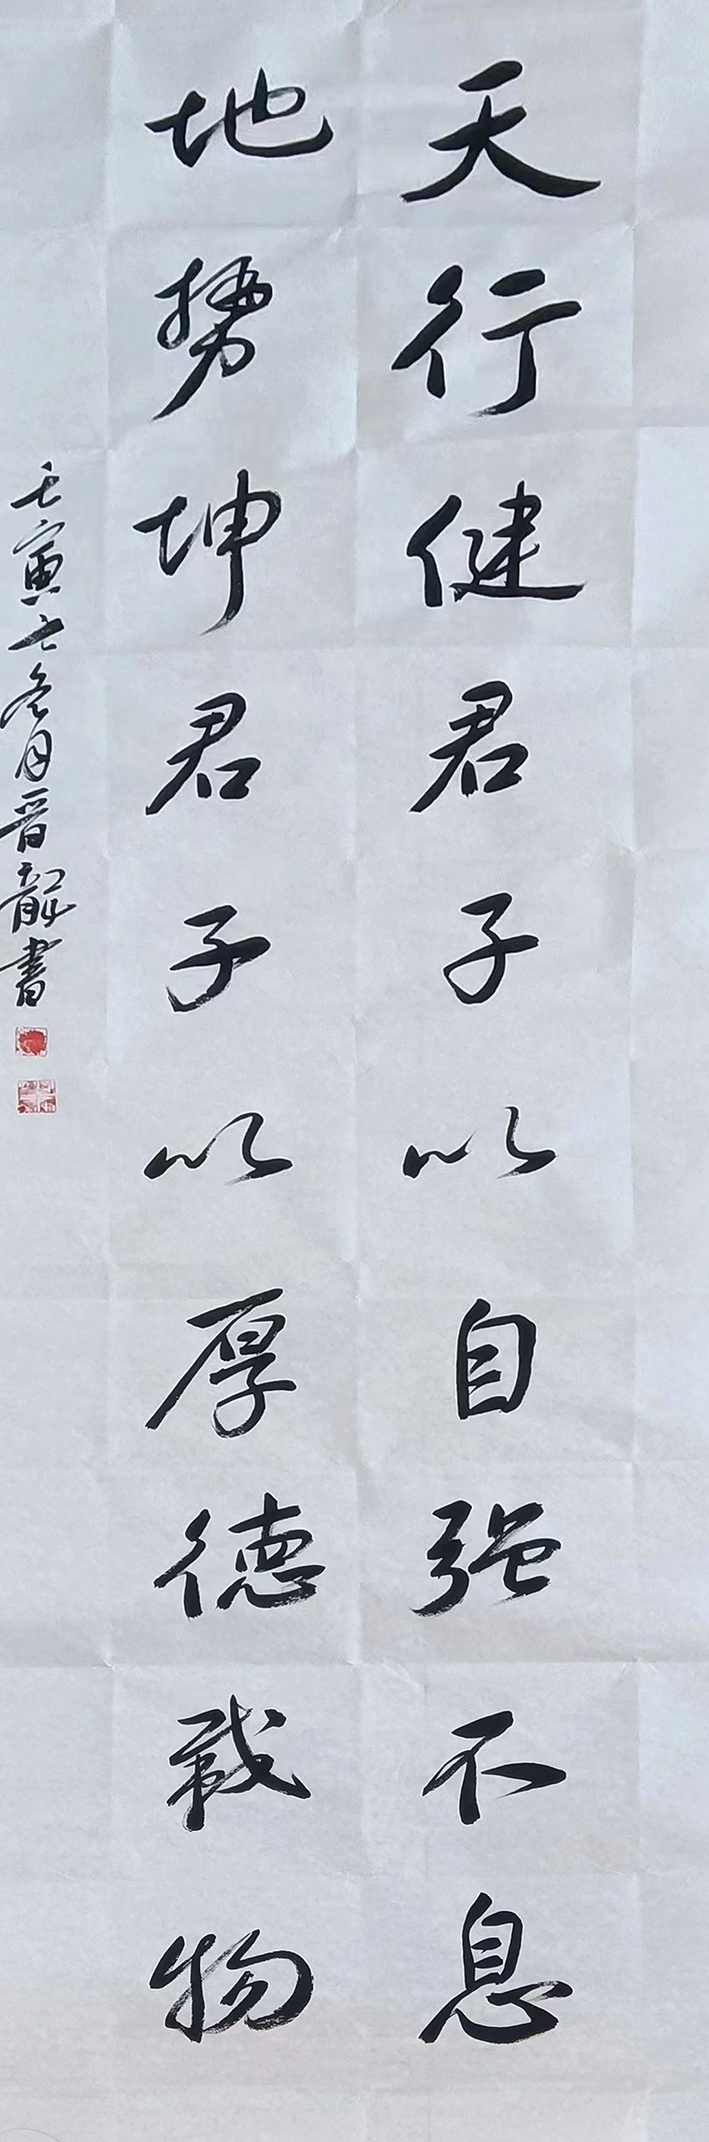 天行健君子以自强不息
地势坤君子以厚德载物
壬寅之冬月晋龍書